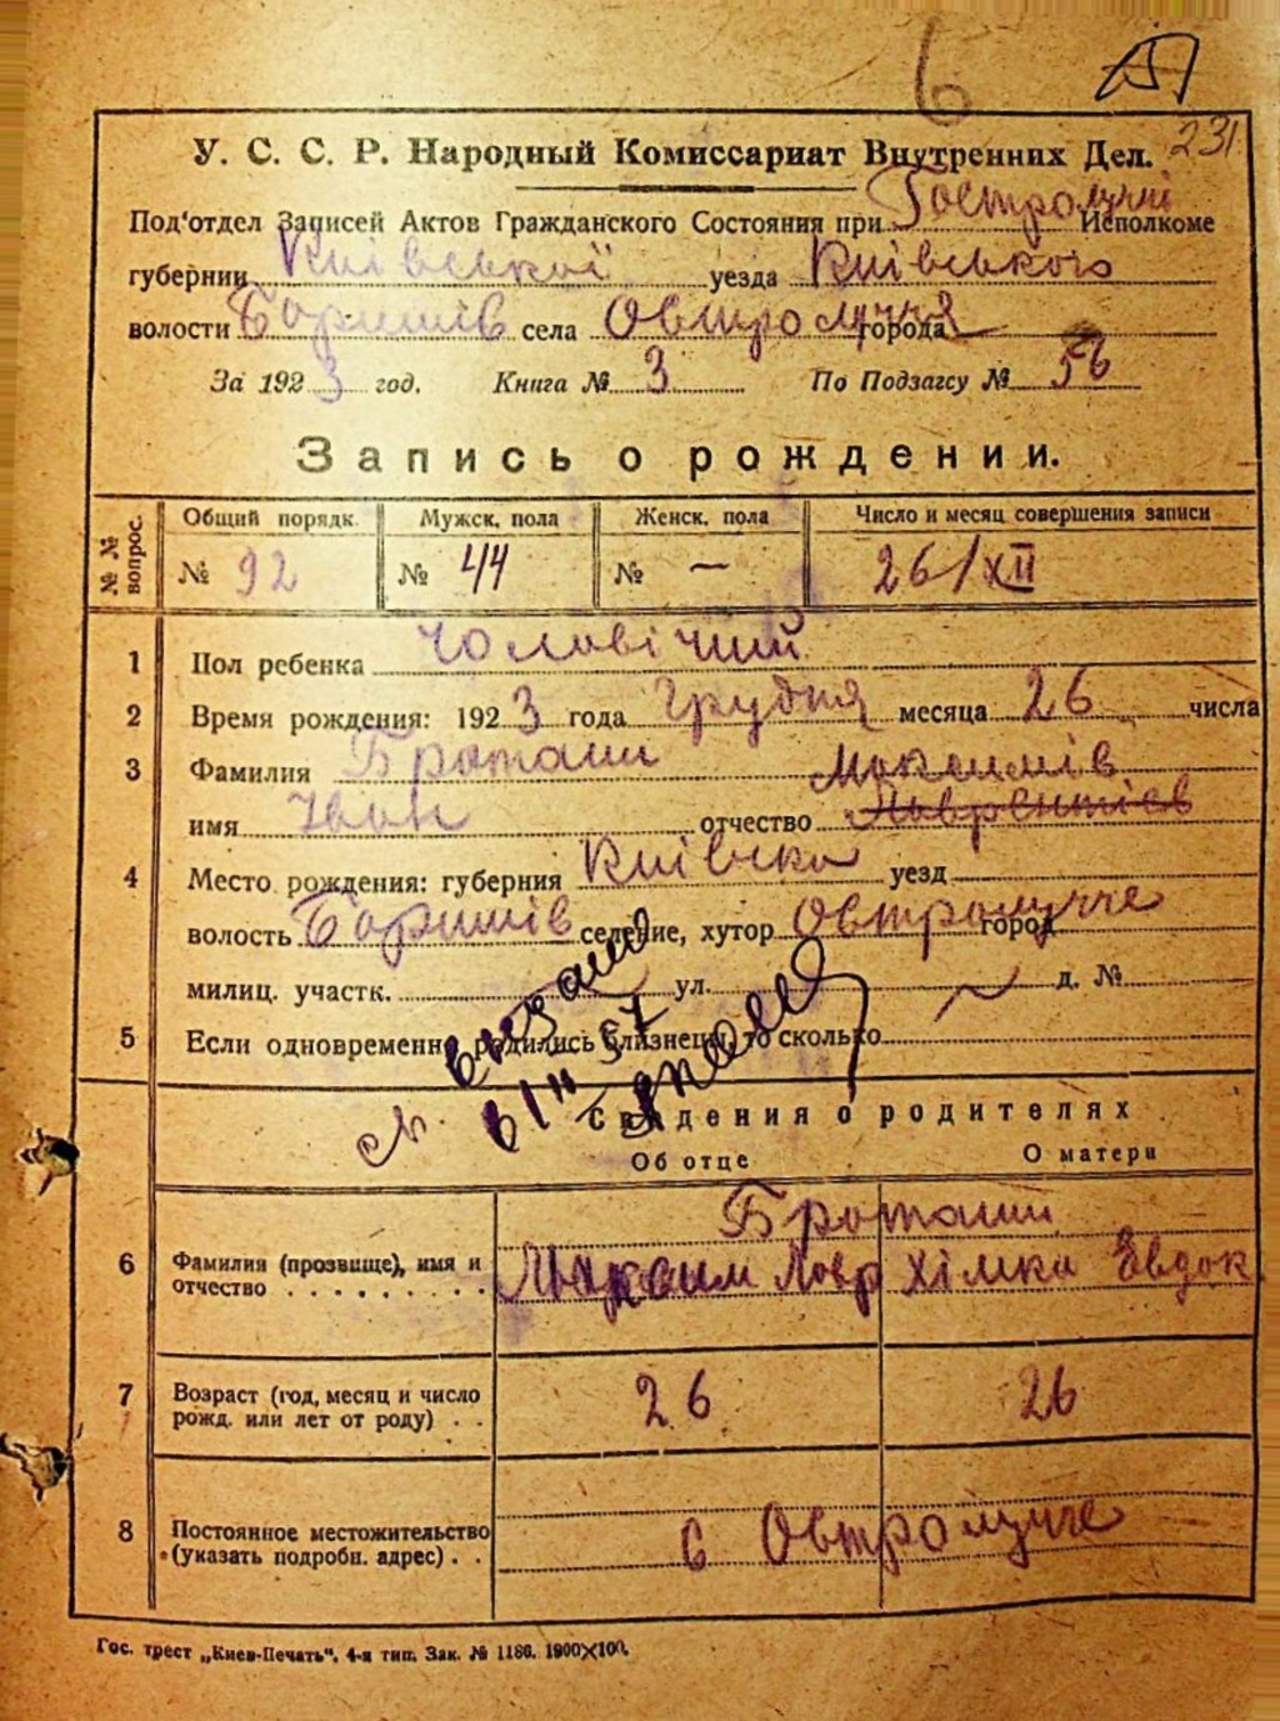 6
231
У. С. С. Р. Народный Комиссариат Внутренних Дел.
Под'отдел Записей Актов Гражданского Состояния при Гостролучкі Исполкоме
губернии Київської уезда Київського
волости Баришів села Овтролуччя города
За 1923 год. Книга № 3 По Подзагсу № 56
Запись о рождении.
№ № вопрос. Общий порядк. Мужск. пола Женск. пола Число и месяц совершения записи
№ 92 № 44 № — 26/XII
1 Пол ребенка Чоловічий
2 Время рождения: 1923 года Грудня месяца 26 числа
3 Фамилия Броташ Максимів
имя Іван отчество Лаврентіев
4 Место рождения: губерния Київска уезд
волость Баришів селение, хутор Овтролучче город
милиц. участк. ул. д. №
5 Если одновременно родились близнецы, то сколько
Сведения о родителях
Об отце О матери
Броташи
6 Фамилия (прозвище), имя и отчество Максим Лавр Хімка Евдок
7 Возраст (год, месяц и число рожд. или лет от роду) 26 26
8 Постоянное местожительство (указать подробн. адрес) с Овтролучче
Гос. трест „Киев-Печать“, 4-я тип. Зак. № 1186. 1900×100.